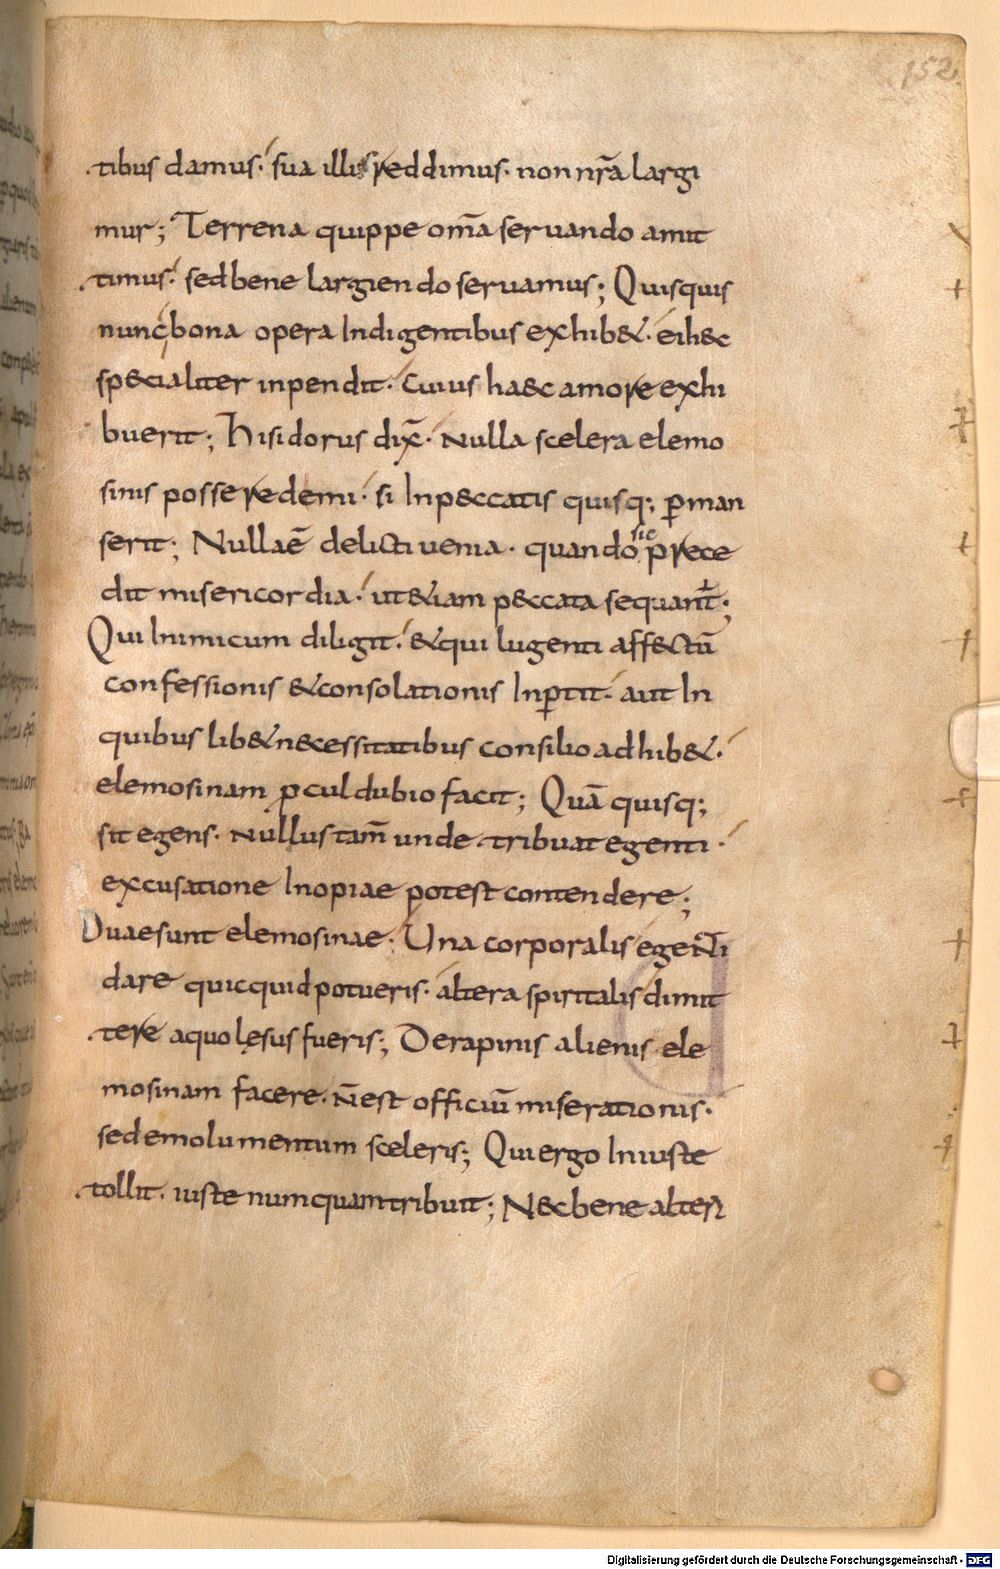 152
tibus damus· sua illis reddimus· non nr̅a largi
mur; Terrena quippe om̅a seruando amit
timus· sed bene largiendo seruamus; Quisquis
nunc bona opera Indigentibus exhib&· ei h&c
sp&cialiter inpendit· Cuius haec amore exhi
buerit; Hisidorus dix̅· Nulla scelera elemo
sinis posse redemi· si In p&ccatis quisq; ꝑman
serit; Nulla ē delicti uenia· quando sic prece
dit misericordia· ut &iam p&ccata sequant̅;
Qui Inimicum diligit· & qui lugenti aff&ctū
confessionis & consolationis Inꝑtit· aut In
quibus lib& n&cessitatibus consilio adhib&·
elemosinam ꝓcul dubio facit; Quā quisq;
sit egens· Nullus tam̅ unde tribuat egenti·
excusatione Inopiae potest contendere;
Duae sunt elemosinae· Una corporalis egenti
dare quicquid potueris· altera spiritalis dimit
tere a quo lęsus fueris; De rapinis alienis ele
mosinam facere· N̅ est officiū miserationis·
sed emolumentum sceleris; Qui ergo Iniuste
tollit· iuste numquam tribuit; N&c bene alteri
Digitalisierung gefördert durch die Deutsche Forschungsgemeinschaft - DFG